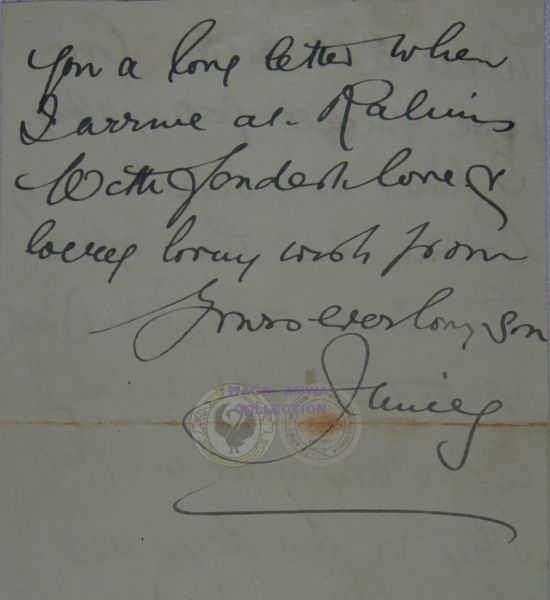 you a long letter when
I arrive at
With fondest love &
every loving wish from
Yours ever loving son
WAGS - AMWA
COLLECTION